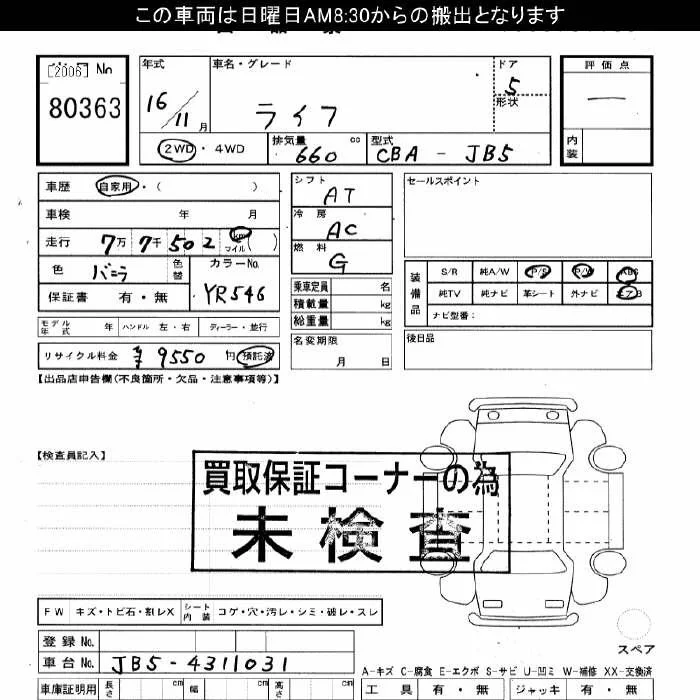 この車両は日曜日AM8:30からの搬出となります
[2006] No
80363
年式 16/11月
車名・グレード ライフ
ドア 5
形状
評価点 —
内装
2WD・4WD
排気量 660 cc
型式 CBA - JB5
車歴 自家用・( )
車検 年 月
走行 7万7千502 km マイル( )
色 バニラ 色替 カラーNo. YR546
保証書 有・無
モデル年式 年 ハンドル 左・右 ディーラー・並行
リサイクル料金 ¥9550円 預託済
シフト AT
冷房 AC
燃料 G
乗車定員 名
積載量 kg
総重量 kg
名変期限
月 日
セールスポイント
装備品
S/R 純A/W P/S P/W ABS
純TV 純ナビ 革シート 外ナビ エアB
ナビ型番:
後日品
【出品店申告欄(不良箇所・欠品・注意事項等)】
【検査員記入】
買取保証コーナーの為
未検査
FW キズ・トビ石・割レX シート内装 コゲ・穴・汚レ・シミ・破レ・スレ
登録 No.
車台 No. JB5-4311031
スペア
A-キズ C-腐食 E-エクボ S-サビ U-凹ミ W-補修 XX-交換済
車庫証明用 長さ cm 幅 cm 高さ cm
工具 有・無 ジャッキ 有・無